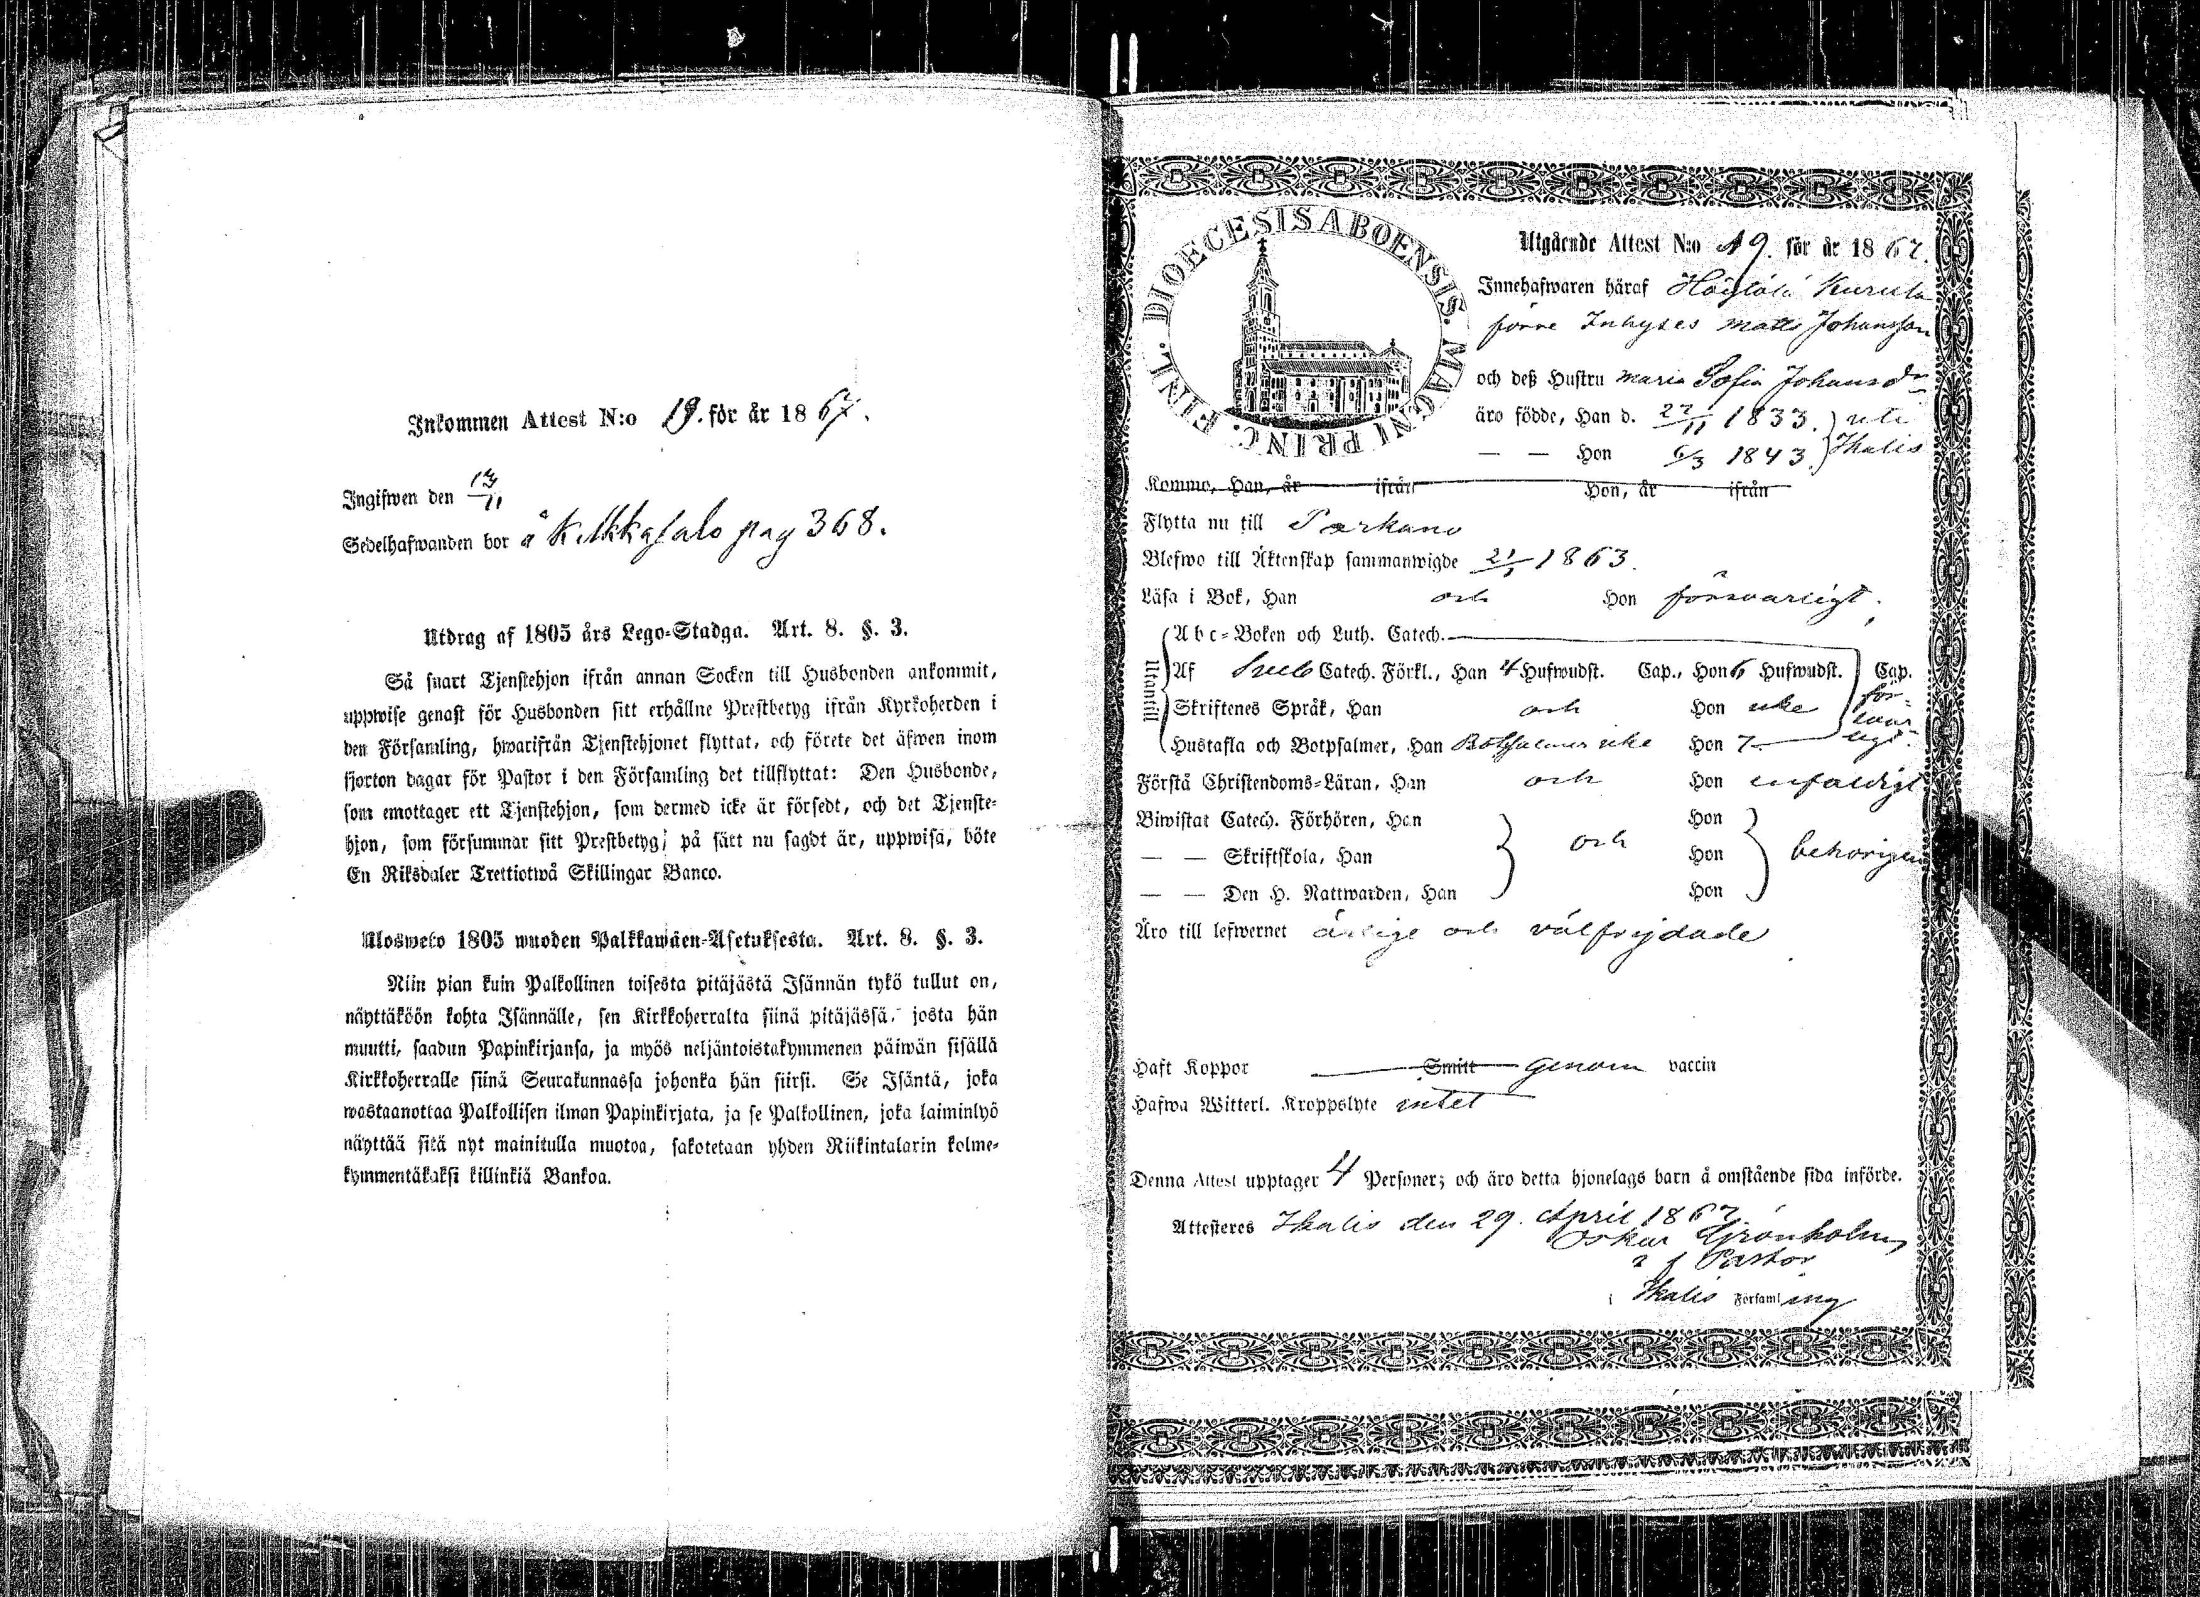 Inkommen Attest N:o 19. för år 1867.
Ingifwen den 13/11
Sedelhafwanden bor å Kilkkasalo pag 368.
Utdrag af 1805 års Lego-Stadga. Art. 8. §. 3.
Så snart Tjenstehjon ifrån annan Socken till Husbonden ankommit,
uppwise genast för Husbonden sitt erhållne Prestbetyg ifrån Kyrkoherden i
den Församling, hwarifrån Tjenstehjonet flyttat, och förete det äfwen inom
fjorton dagar för Pastor i den Församling det tillflyttat: Den Husbonde,
som emottager ett Tjenstehjon, som dermed icke är försedt, och det Tjenste-
hjon, som försummar sitt Prestbetyg, på sätt nu sagdt är, uppwisa, böte
En Riksdaler Trettiotwå Skillingar Banco.
Ulosweto 1805 wuoden Palkkawäen-Asetuksesta. Art. 8. §. 3.
Niin pian kuin Palkollinen toisesta pitäjästä Isännän tykö tullut on,
näyttäköön kohta Isännälle, sen Kirkkoherralta siinä pitäjässä, josta hän
muutti, saadun Papinkirjansa, ja myös neljäntoistakymmenen päiwän sisällä
Kirkkoherralle siinä Seurakunnassa johonka hän siirsi. Se Isäntä, joka
wastaanottaa Palkollisen ilman Papinkirjata, ja se Palkollinen, joka laiminlyö
näyttää sitä nyt mainitulla muotoa, sakotetaan yhden Riikintalarin kolme-
kymmentäkaksi killinkiä Bankoa.
DIOECESIS ABOENSIS. MAGNI PRINC. FINL.
Utgående Attest N:o 19. för år 1867.
Innehafwaren häraf Höytölä Kurula
förre Inhyses Matts Johansson
och deß Hustru Maria Sofia Johansdr
äro födde, Han d. 22/11 1833. uti
— — Hon 6/3 1843. Ikalis
Komme, Han, år ifrån Hon, år ifrån
Flytta nu till Parkano
Blefwo till Äktenskap sammanwigde 21/1 1863.
Läsa i Bok, Han och Hon försvarligt.
Utantill
Abc-Boken och Luth. Catech.
Af Sveb Catech. Förkl., Han 4 Hufwudst. Cap., Hon 6 Hufwudst. Cap.
Skriftenes Språk, Han och Hon icke för-
Hustafla och Botpsalmer, Han Botpsalmer icke Hon 7 svarligt.
Förstå Christendoms-Läran, Han och Hon enfaldigt
Biwistat Catech. Förhören, Han Hon
— — Skriftskola, Han och Hon behörigen
— — Den H. Nattwarden, Han Hon
Äro till lefwernet ärlige och välfrejdade
Haft Koppor Smitt genom vaccin
Hafwa Witterl. Kroppslyte intet
Denna Attest upptager 4 Personer; och äro detta hjonelags barn å omstående sida införde.
Attesteres Ikalis den 29. April 1867
Oskar Grönholm
a f Pastor
i Ikalis Församling